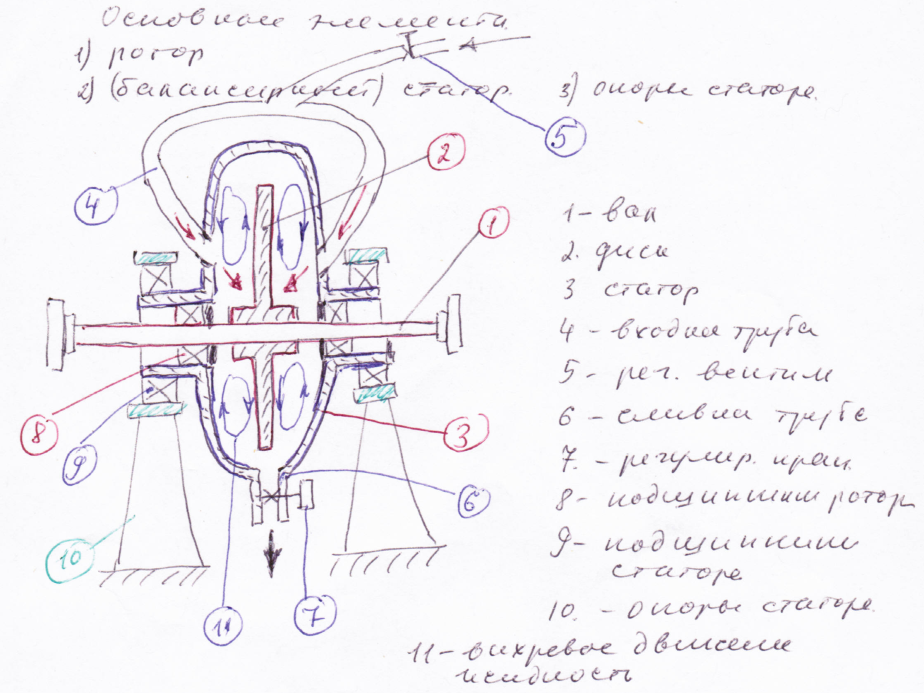 Основные элементы
1) ротор
2) (балансирный) статор. 3) опоры статора.
5
2
4
1
1 - вал
2. диск
3 статор
4 - входная труба
5 - рег. вентиль
6 - сливная труба
7. - регулир. кран
8 - подшипники ротора
9 - подшипники
статора
10. - опоры статора.
11 - вихревое движение
жидкость
8
9
3
6
10
11
7